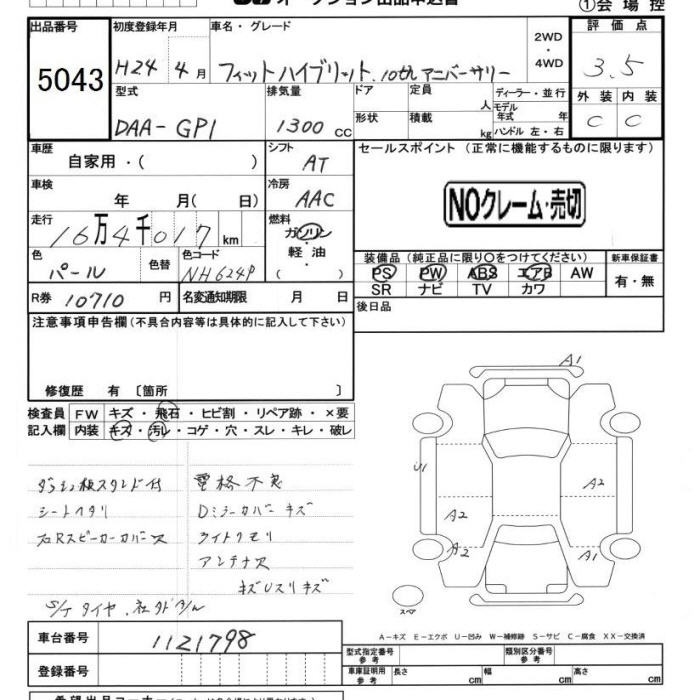 ①会 場 控
出品番号
5043
初度登録年月
H24 4月
車名・グレード
フィットハイブリット.10thアニバーサリー
2WD
・
4WD
評 価 点
3.5
外 装 内 装
C C
型式
DAA-GP1
排気量
1300 CC
ドア
形状
定員
人
積載
kg
ディーラー・並行
モデル
年式 年
ハンドル 左・右
車歴
自家用・( )
シフト
AT
セールスポイント (正常に機能するものに限ります)
NOクレーム・売切
車検
年 月( 日)
冷房
AAC
走行
16万4千017 km
燃料
ガソリン
・
軽 油
・
( )
色
パール
色替
色コード
NH624P
装備品 (純正品に限り○をつけてください)
PS PW ABS エアB AW
SR ナビ TV カワ
新車保証書
有・無
R券 10710 円
名変通知期限 月 日
後日品
注意事項申告欄(不具合内容等は具体的に記入して下さい)
修復歴 有 〔箇所 〕
検査員 FW キズ・飛石・ヒビ割・リペア跡・×要
記入欄 内装 キズ・汚レ・コゲ・穴・スレ・キレ・破レ
電格不良
シートヘタリ
Dミラーカバーキズ
ライトクモリ
アンテナ欠
A1
U1
A2
A2
A2
A1
A1
スペア
A−キズ E−エクボ U−凹み W−補修跡 S−サビ C−腐食 XX−交換済
車台番号
1121798
登録番号
型式指定番号
参 考
類別区分番号
参 考
車庫証明用
参 考
長さ cm
幅 cm
高さ cm